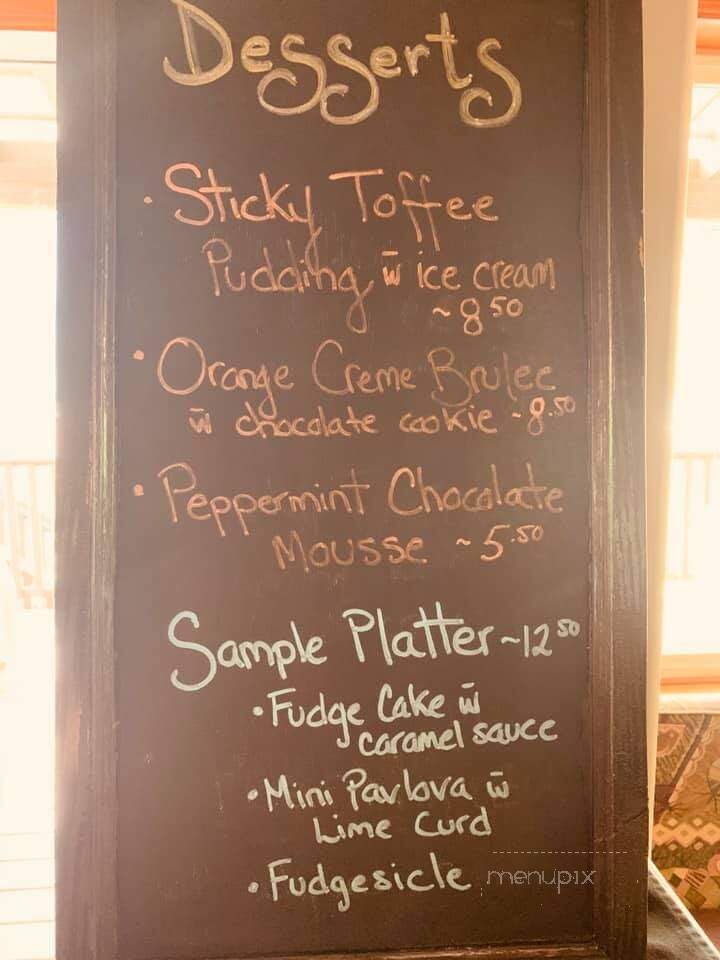 Desserts
• Sticky Toffee
Pudding w̄ ice cream
~ 8 50
• Orange Creme Brulee
w̄ chocolate cookie ~8.50
• Peppermint Chocolate
Mousse ~5.50
Sample Platter ~12 50
• Fudge Cake w̄
caramel sauce
• Mini Pavlova w̄
Lime Curd
• Fudgesicle
menupix